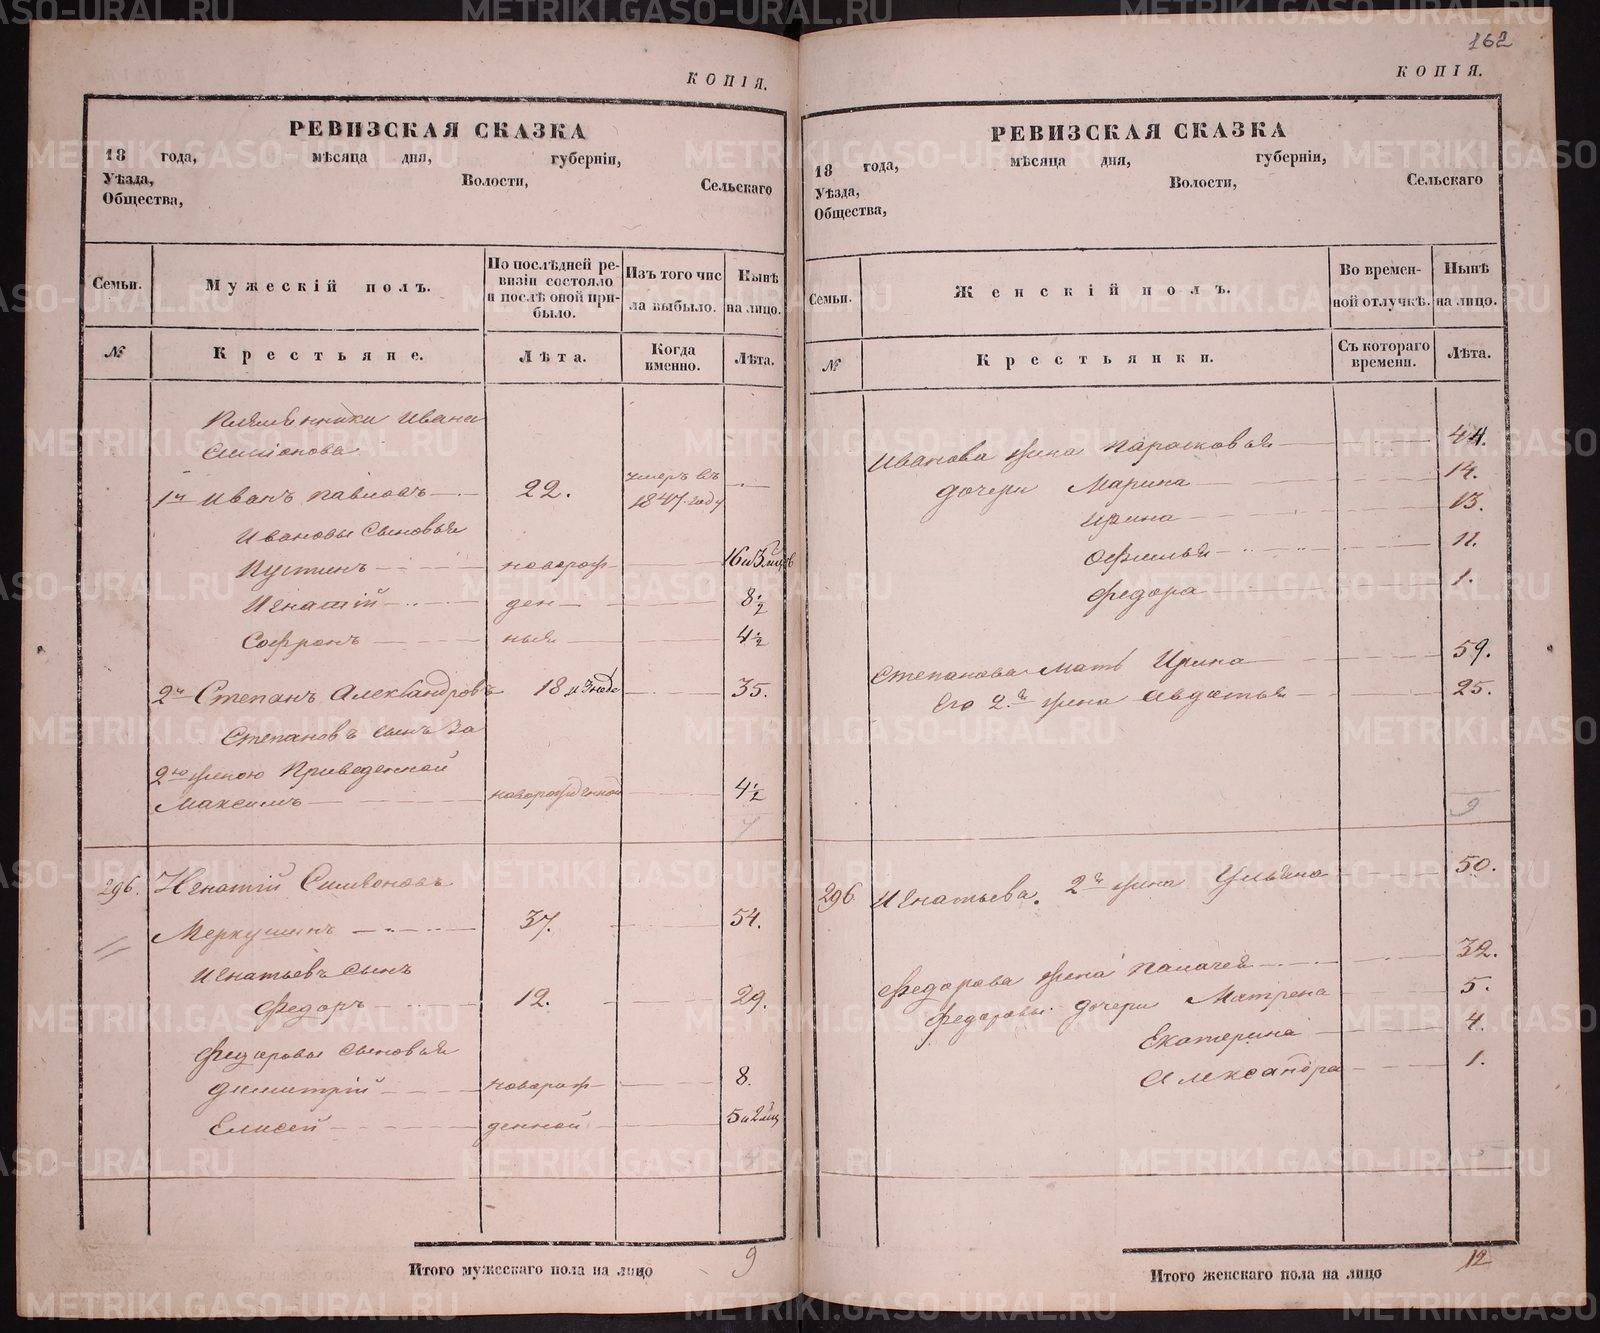 КОПІЯ.
РЕВИЗСКАЯ СКАЗКА
18 года, мѣсяца дня, губерніи,
Уѣзда, Волости, Сельскаго
Общества,
Семьи. Мужескій полъ. По послѣдней ревизіи состояло и послѣ оной прибыло. Изъ того числа выбыло. Нынѣ на лицо.
№ Крестьяне. Лѣта. Когда именно. Лѣта.
Племянники Ивана
Симіонова
1й Иванъ Павловъ 22. умеръ въ 1847 году
Ивановы Сыновья
Иустинъ новорож 16 и 3 мца
Игнатій ден 8 1/2
Софронъ ныя 4 1/2
2й Степанъ Александровъ 18 и 35.
Степановъ сынъ за
2ю женою Приведенной
Максимъ новорожденной 4 1/2
7
296. Игнатій Симеоновъ
Меркушинъ 37. 54.
Игнатьевъ сынъ
Федоръ 12. 29.
Федоровы сыновья
Димитрій новорож 8.
Елисей денной 5 и 2 мц
4
Итого мужескаго пола на лицо 9
162
КОПІЯ.
РЕВИЗСКАЯ СКАЗКА
18 года, мѣсяца дня, губерніи,
Уѣзда, Волости, Сельскаго
Общества,
Семьи. Женскій полъ. Во временной отлучкѣ. Нынѣ на лицо.
№ Крестьянки. Съ котораго времени. Лѣта.
Иванова жена Парасковья 44.
дочери Марина 14.
Ирина 13.
Офимья 11.
Федора 1.
Степанова мать Ирина 59.
Его 2я жена Авдотья 25.
296 Игнатьева. 2я жена Ульяна 50.
Федорова жена Палагея 32.
Федоровы дочери Матрена 5.
Екатерина 4.
Александра 1.
5
Итого женскаго пола на лицо 12
METRIKI.GASO-URAL.RU